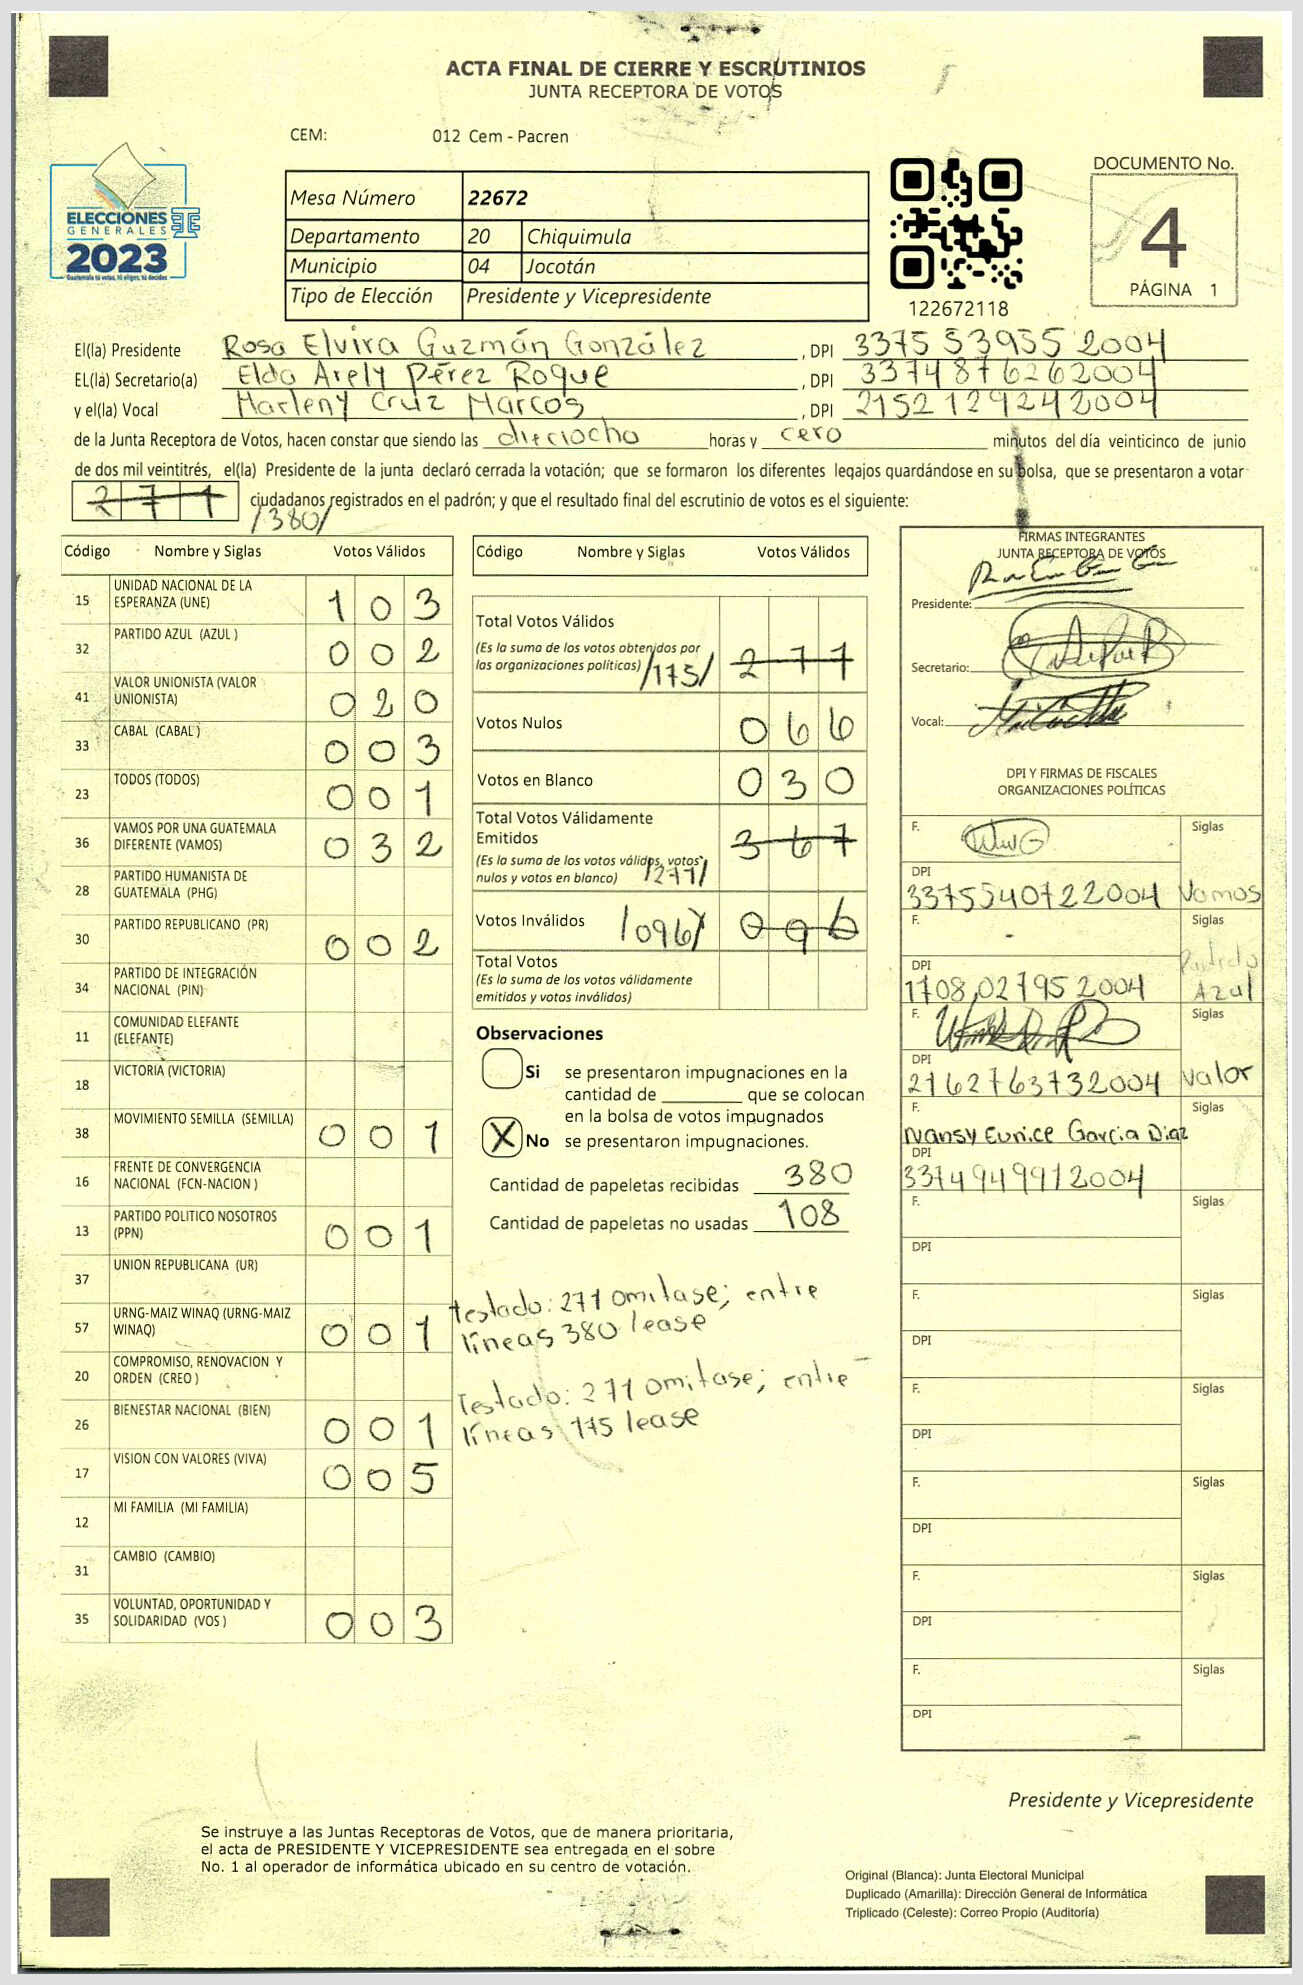 ACTA FINAL DE CIERRE Y ESCRUTINIOS
JUNTA RECEPTORA DE VOTOS
CEM: 012 Cem - Pacren
DOCUMENTO No.
4
PÁGINA 1
ELECCIONES
GENERALES
2023
Guatemala tú votas, tú eliges, tú decides
Mesa Número 22672
Departamento 20 Chiquimula
Municipio 04 Jocotán
Tipo de Elección Presidente y Vicepresidente
122672118
El(la) Presidente Rosa Elvira Guzmán González, DPI 3375 53955 2004
EL(la) Secretario(a) Elda Arely Pérez Roque, DPI 3374876262004
y el(la) Vocal Marleny Cruz Marcos, DPI 2152129242004
de la Junta Receptora de Votos, hacen constar que siendo las dieciocho horas y cero minutos del día veinticinco de junio
de dos mil veintitrés, el(la) Presidente de la junta declaró cerrada la votación; que se formaron los diferentes legajos guardándose en su bolsa, que se presentaron a votar
271 ciudadanos registrados en el padrón; y que el resultado final del escrutinio de votos es el siguiente:
/380/
Código Nombre y Siglas Votos Válidos
15 UNIDAD NACIONAL DE LA ESPERANZA (UNE) 103
32 PARTIDO AZUL (AZUL ) 002
41 VALOR UNIONISTA (VALOR UNIONISTA) 020
33 CABAL (CABAL ) 003
23 TODOS (TODOS) 001
36 VAMOS POR UNA GUATEMALA DIFERENTE (VAMOS) 032
28 PARTIDO HUMANISTA DE GUATEMALA (PHG)
30 PARTIDO REPUBLICANO (PR) 002
34 PARTIDO DE INTEGRACIÓN NACIONAL (PIN)
11 COMUNIDAD ELEFANTE (ELEFANTE)
18 VICTORIA (VICTORIA)
38 MOVIMIENTO SEMILLA (SEMILLA) 001
16 FRENTE DE CONVERGENCIA NACIONAL (FCN-NACION )
13 PARTIDO POLITICO NOSOTROS (PPN) 001
37 UNION REPUBLICANA (UR)
57 URNG-MAIZ WINAQ (URNG-MAIZ WINAQ) 001
20 COMPROMISO, RENOVACION Y ORDEN (CREO )
26 BIENESTAR NACIONAL (BIEN) 001
17 VISION CON VALORES (VIVA) 005
12 MI FAMILIA (MI FAMILIA)
31 CAMBIO (CAMBIO)
35 VOLUNTAD, OPORTUNIDAD Y SOLIDARIDAD (VOS ) 003
Código Nombre y Siglas Votos Válidos
Total Votos Válidos
(Es la suma de los votos obtenidos por
las organizaciones políticas) /175/ 271
Votos Nulos 066
Votos en Blanco 030
Total Votos Válidamente
Emitidos 367
(Es la suma de los votos válidos, votos
nulos y votos en blanco) /271/
Votos Inválidos /096/ 096
Total Votos
(Es la suma de los votos válidamente
emitidos y votos inválidos)
Observaciones
Si se presentaron impugnaciones en la
cantidad de ________ que se colocan
en la bolsa de votos impugnados
X No se presentaron impugnaciones.
Cantidad de papeletas recibidas 380
Cantidad de papeletas no usadas 108
testado: 271 omitase; entre
líneas 380 lease
Testado: 271 omitase; entre
líneas 175 lease
FIRMAS INTEGRANTES
JUNTA RECEPTORA DE VOTOS
Presidente:
Secretario:
Vocal:
DPI Y FIRMAS DE FISCALES
ORGANIZACIONES POLÍTICAS
F. Siglas
DPI
3375540722004 Vamos
F. Siglas
DPI Partido
1708 027952004 Azul
F. Siglas
DPI
2162763732004 Valor
F. Siglas
Nansy Eunice Garcia Diaz
DPI
3374949912004
F. Siglas
DPI
F. Siglas
DPI
F. Siglas
DPI
F. Siglas
DPI
F. Siglas
DPI
F. Siglas
DPI
Presidente y Vicepresidente
Se instruye a las Juntas Receptoras de Votos, que de manera prioritaria,
el acta de PRESIDENTE Y VICEPRESIDENTE sea entregada en el sobre
No. 1 al operador de informática ubicado en su centro de votación.
Original (Blanca): Junta Electoral Municipal
Duplicado (Amarilla): Dirección General de Informática
Triplicado (Celeste): Correo Propio (Auditoría)